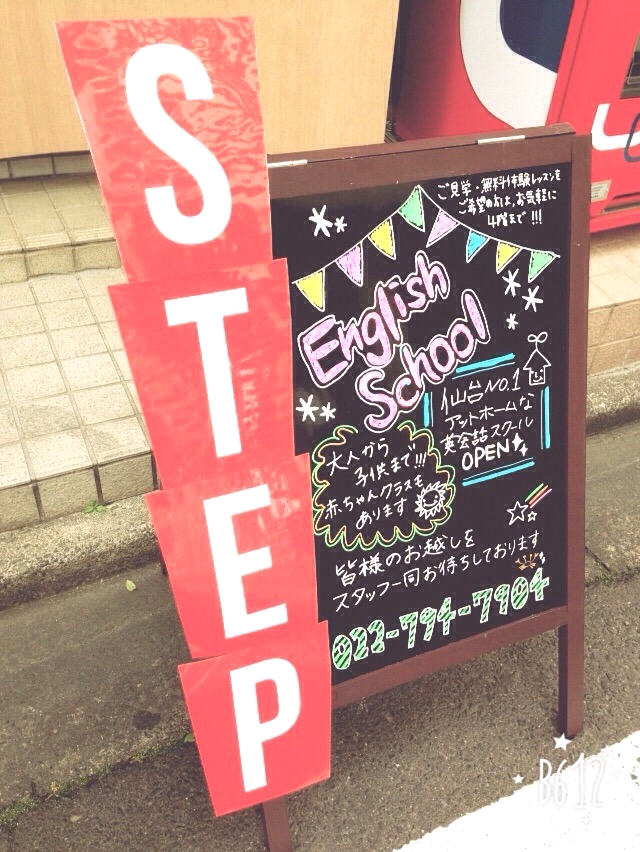 STEP
ご見学・無料体験レッスンを
ご希望の方は、お気軽に
4階まで!!!
English
School
仙台No.1
アットホームな
英会話スクール
OPEN
大人から
子供まで!!!
赤ちゃんクラスも
あります
皆様のお越しを
スタッフ一同お待ちしております
022-794-7904
B612